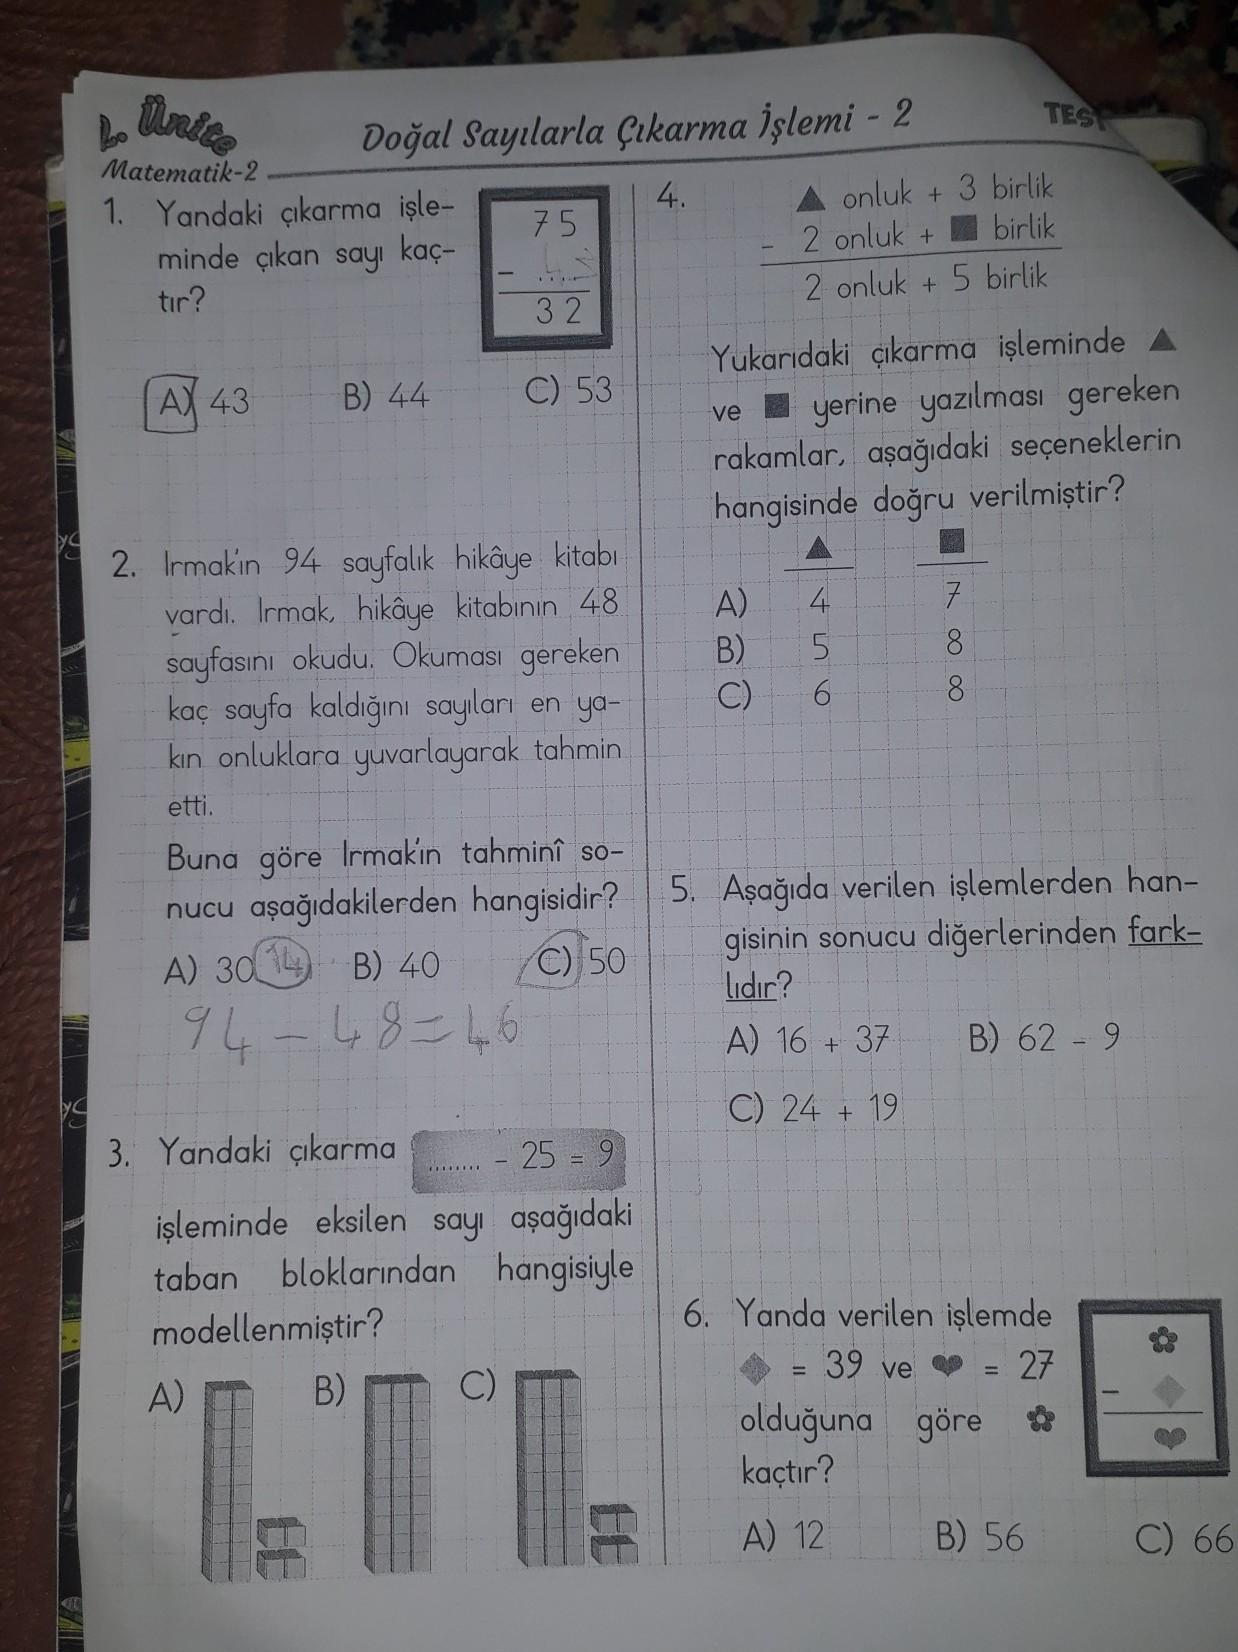 Ünite
Matematik-2
Doğal Sayılarla Çıkarma İşlemi - 2
TEST
1. Yandaki çıkarma işle-
minde çıkan sayı kaç-
tır?
75
- .....
32
A) 43 B) 44 C) 53
2. Irmak'ın 94 sayfalık hikâye kitabı
vardı. Irmak, hikâye kitabının 48
sayfasını okudu. Okuması gereken
kaç sayfa kaldığını sayıları en ya-
kın onluklara yuvarlayarak tahmin
etti.
Buna göre Irmak'ın tahminî so-
nucu aşağıdakilerden hangisidir?
A) 30 14 B) 40 C) 50
94 - 48 = 46
3. Yandaki çıkarma ........ - 25 = 9
işleminde eksilen sayı aşağıdaki
taban bloklarından hangisiyle
modellenmiştir?
A) B) C)
4. ▲ onluk + 3 birlik
- 2 onluk + ■ birlik
2 onluk + 5 birlik
Yukarıdaki çıkarma işleminde ▲
ve ■ yerine yazılması gereken
rakamlar, aşağıdaki seçeneklerin
hangisinde doğru verilmiştir?
▲ ■
A) 4 7
B) 5 8
C) 6 8
5. Aşağıda verilen işlemlerden han-
gisinin sonucu diğerlerinden fark-
lıdır?
A) 16 + 37 B) 62 - 9
C) 24 + 19
6. Yanda verilen işlemde
◆ = 39 ve ♥ = 27
olduğuna göre ✿
kaçtır?
✿
- ◆
♥
A) 12 B) 56 C) 66